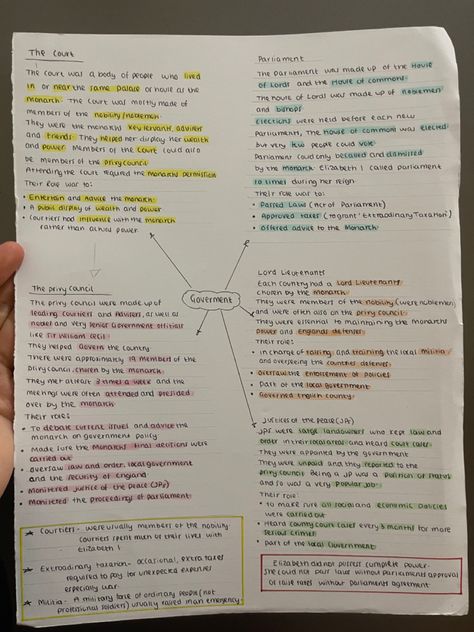 The Court
The court was a body of people who lived
in or near the same palace or house as the
monarch. The court was mostly made of
members of the nobility/noblemen.
They were the monarchs key servants, advisers
and friends. They helped her display her wealth
and power. Members of the court could also
be members of the privy council
Attending the court required the monarchs permission
Their role was to:
• Entertain and advice the monarch.
• A public display of wealth and power
• Courtiers had influence with the monarch
rather than actual power.
The privy council
The privy council were made up of
leading courtiers and advisers, as well as
nobles and very senior Government officials
like Sir William Cecil.
They helped Govern the country
There were approximately 19 members of the
privy council chosen by the monarch.
They met atleast 3 times a week and the
meetings were often attended and presided
over by the monarch
Their roles:
• To debate current issues and advice the
monarch on government policy
• Made sure the Monarchs final decisions were
carried out
• oversaw law and order, local government
and the security of England
• Monitered justice of the peace (JPs)
• Monitered the proceeding of parliament.
★ Courtiers - were usually members of the nobility.
Courtiers spent much of their lives with
Elizabeth I
★ Extraodinary taxation - occasional, extra taxes
required to pay for unexpected expenses
especially war.
★ Militia - A military force of ordinary people (not
professional soldiers) usually raised in an emergency.
Goverment
Parliament
The Parliament was made up of the House
of Lords and the House of commons.
The house of Lords was made up of noblemen
and bishops
elections were held before each new
Parliaments, The house of common was elected
but very few people could vote.
Parliament could only be called and dismissed
by the monarch. Elizabeth I called parliament
10 times during her reign
Their role was to:
• Passed Laws (Act of Parliament)
• Approved taxes (to grant 'Extraordinary Taxation')
• offered advice to the Monarch
Lord Lieutenants
Each country had a Lord Lieutenants
chosen by the monarch.
They were members of the nobility (were noblemen)
and were often also on the privy council.
They were essential to maintaining the Monarchs
power and englands defenses.
Their role:
• in charge of raising and training the local militia
and overseeing the countries defenses
• oversaw the enforcement of policies
• Part of the local government
• Governed English country
Justices of the peace (JPs)
JPs were large landowners who kept law and
order in their local areas and heard court cases.
They were appointed by the government
They were unpaid and they reported to the
privy council. Being a JP was a position of status
and so was a very popular job.
Their role:
• to make sure all social and economic policies
were carried out
• Heard county court cases every 3 months for more
serious crimes
• part of the local Government
Elizabeth did not possess complete power.
She could not pass laws without parliaments approval
or raise taxes without parliaments agreement